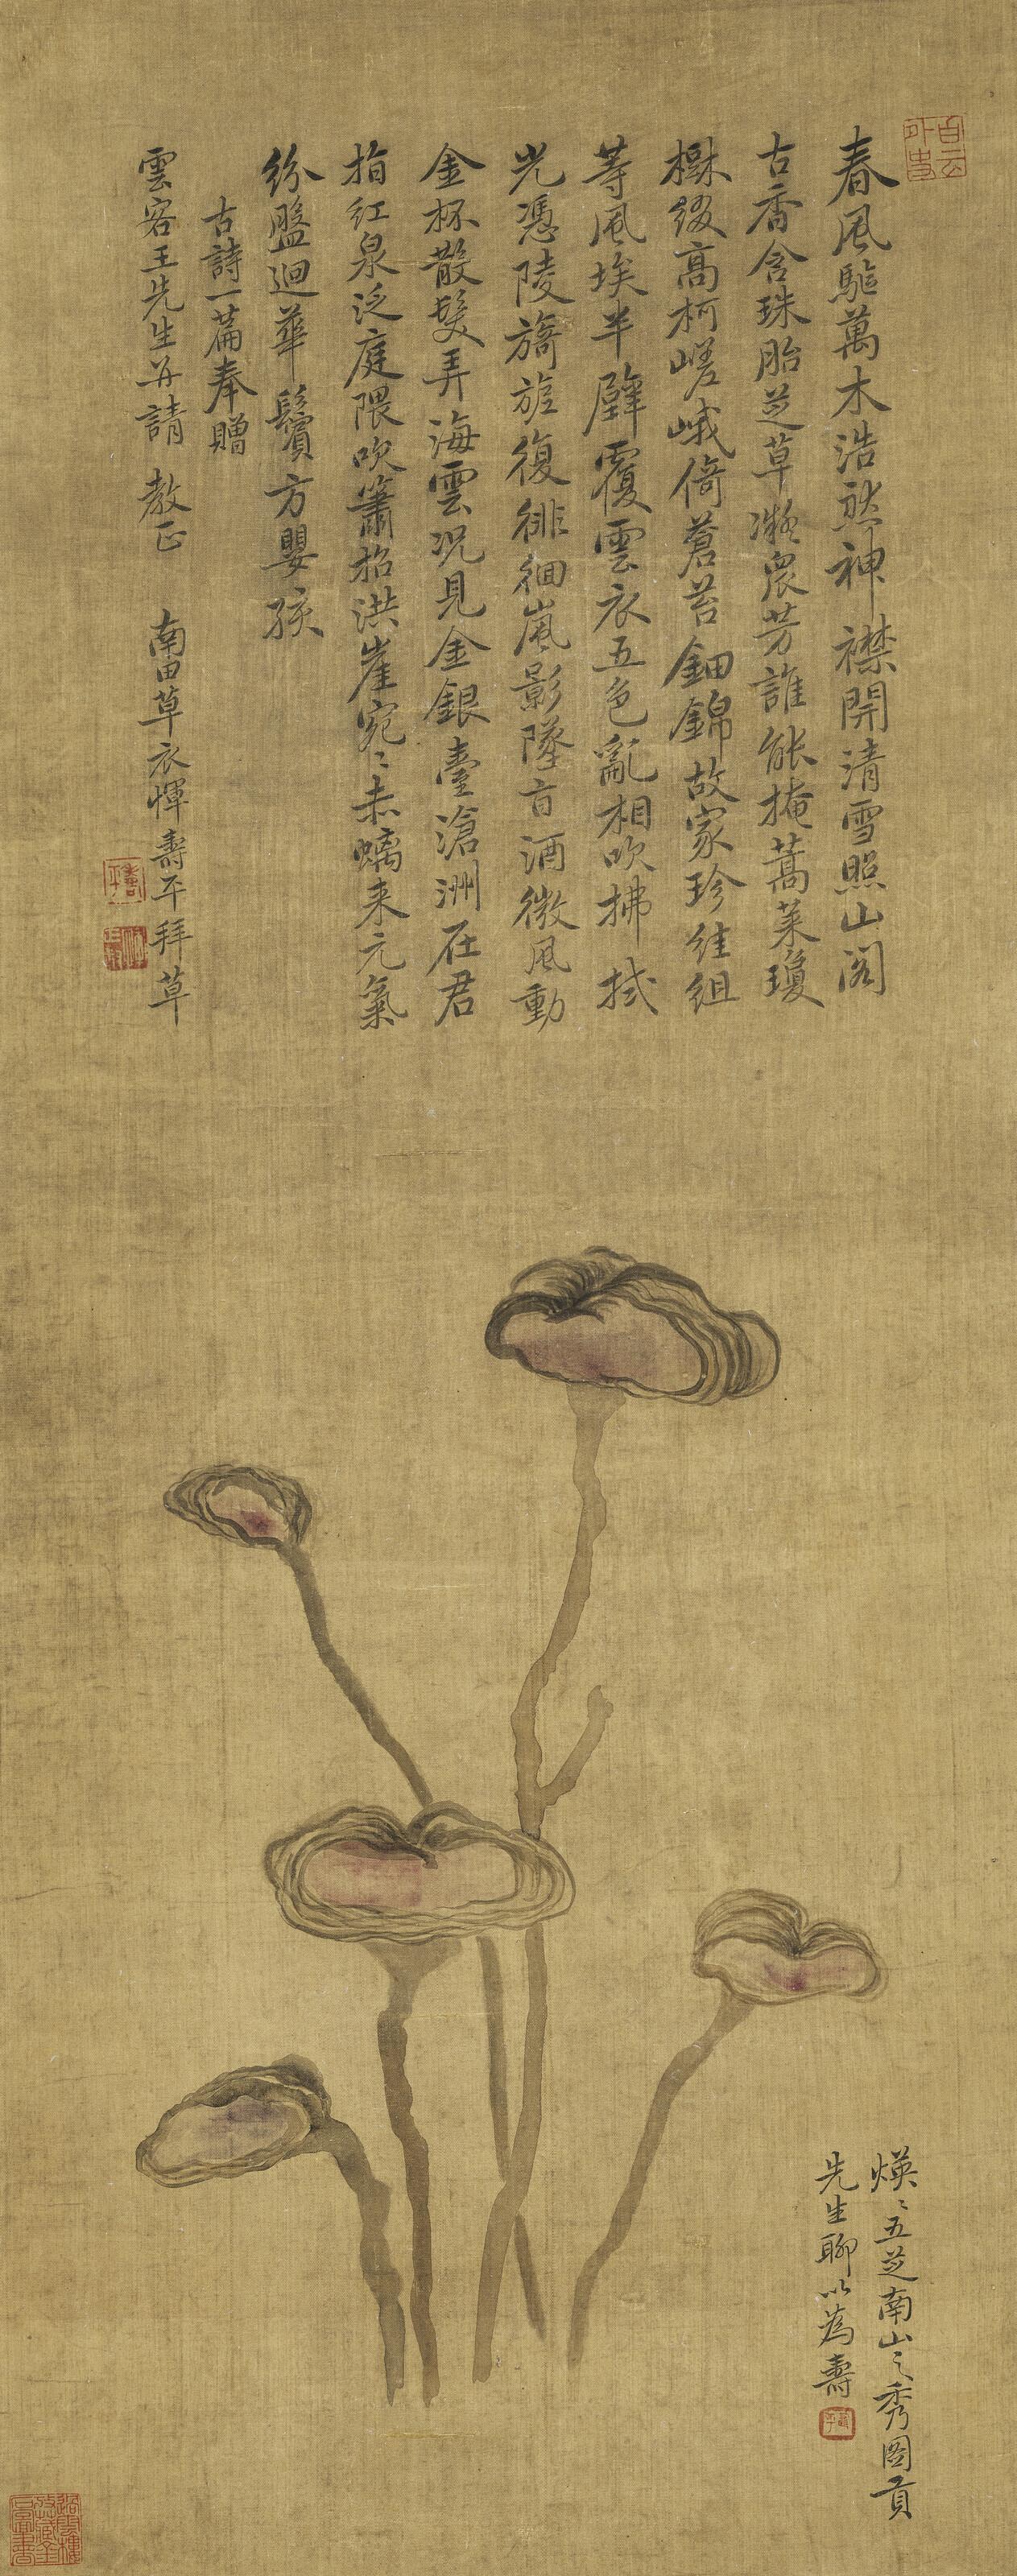 春風驅萬木浩然神襟開清雪照山閣
古香含珠胎芝草凝眾芳誰能掩蒿萊瓊
樹綴高柯嵯峨倚蒼苔鈿錦故家珍組
等風埃半壁覆雲衣五色亂相吹拂拭
光憑陵旖旎復徘徊嵐影墜百酒微風動
金杯散髮弄海雲況見金銀臺滄洲在君
指紅泉泛庭隈吹簫招洪崖宛〻赤螭来元氣
紛盤迴華鬢方嬰孩
古詩一篇奉贈
雲客王先生并請 教正 南田草衣惲壽平拜草
煐〻五芝南山之秀圖貢
先生聊以為壽
白雲外史
壽平
過雲樓